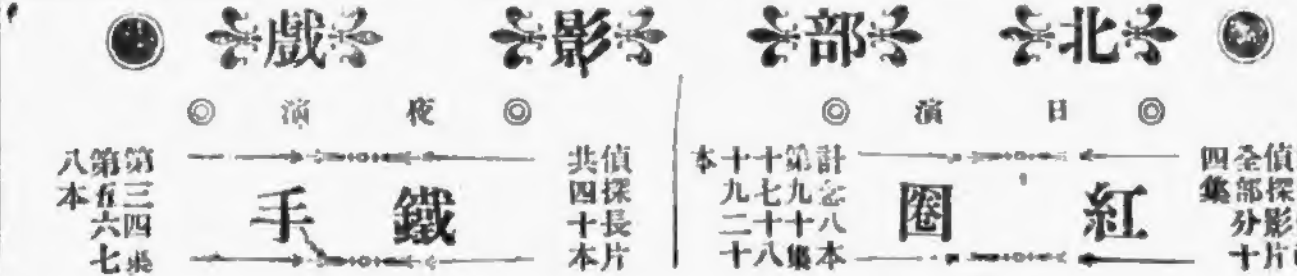 北部影戲
日演
偵探影片
全部分十
四集
紅圈
計念八本
第九十集
十七十八
十九二十
本
夜演
偵探長片
共四十本
鐵手
第三四集
第五六七
八本